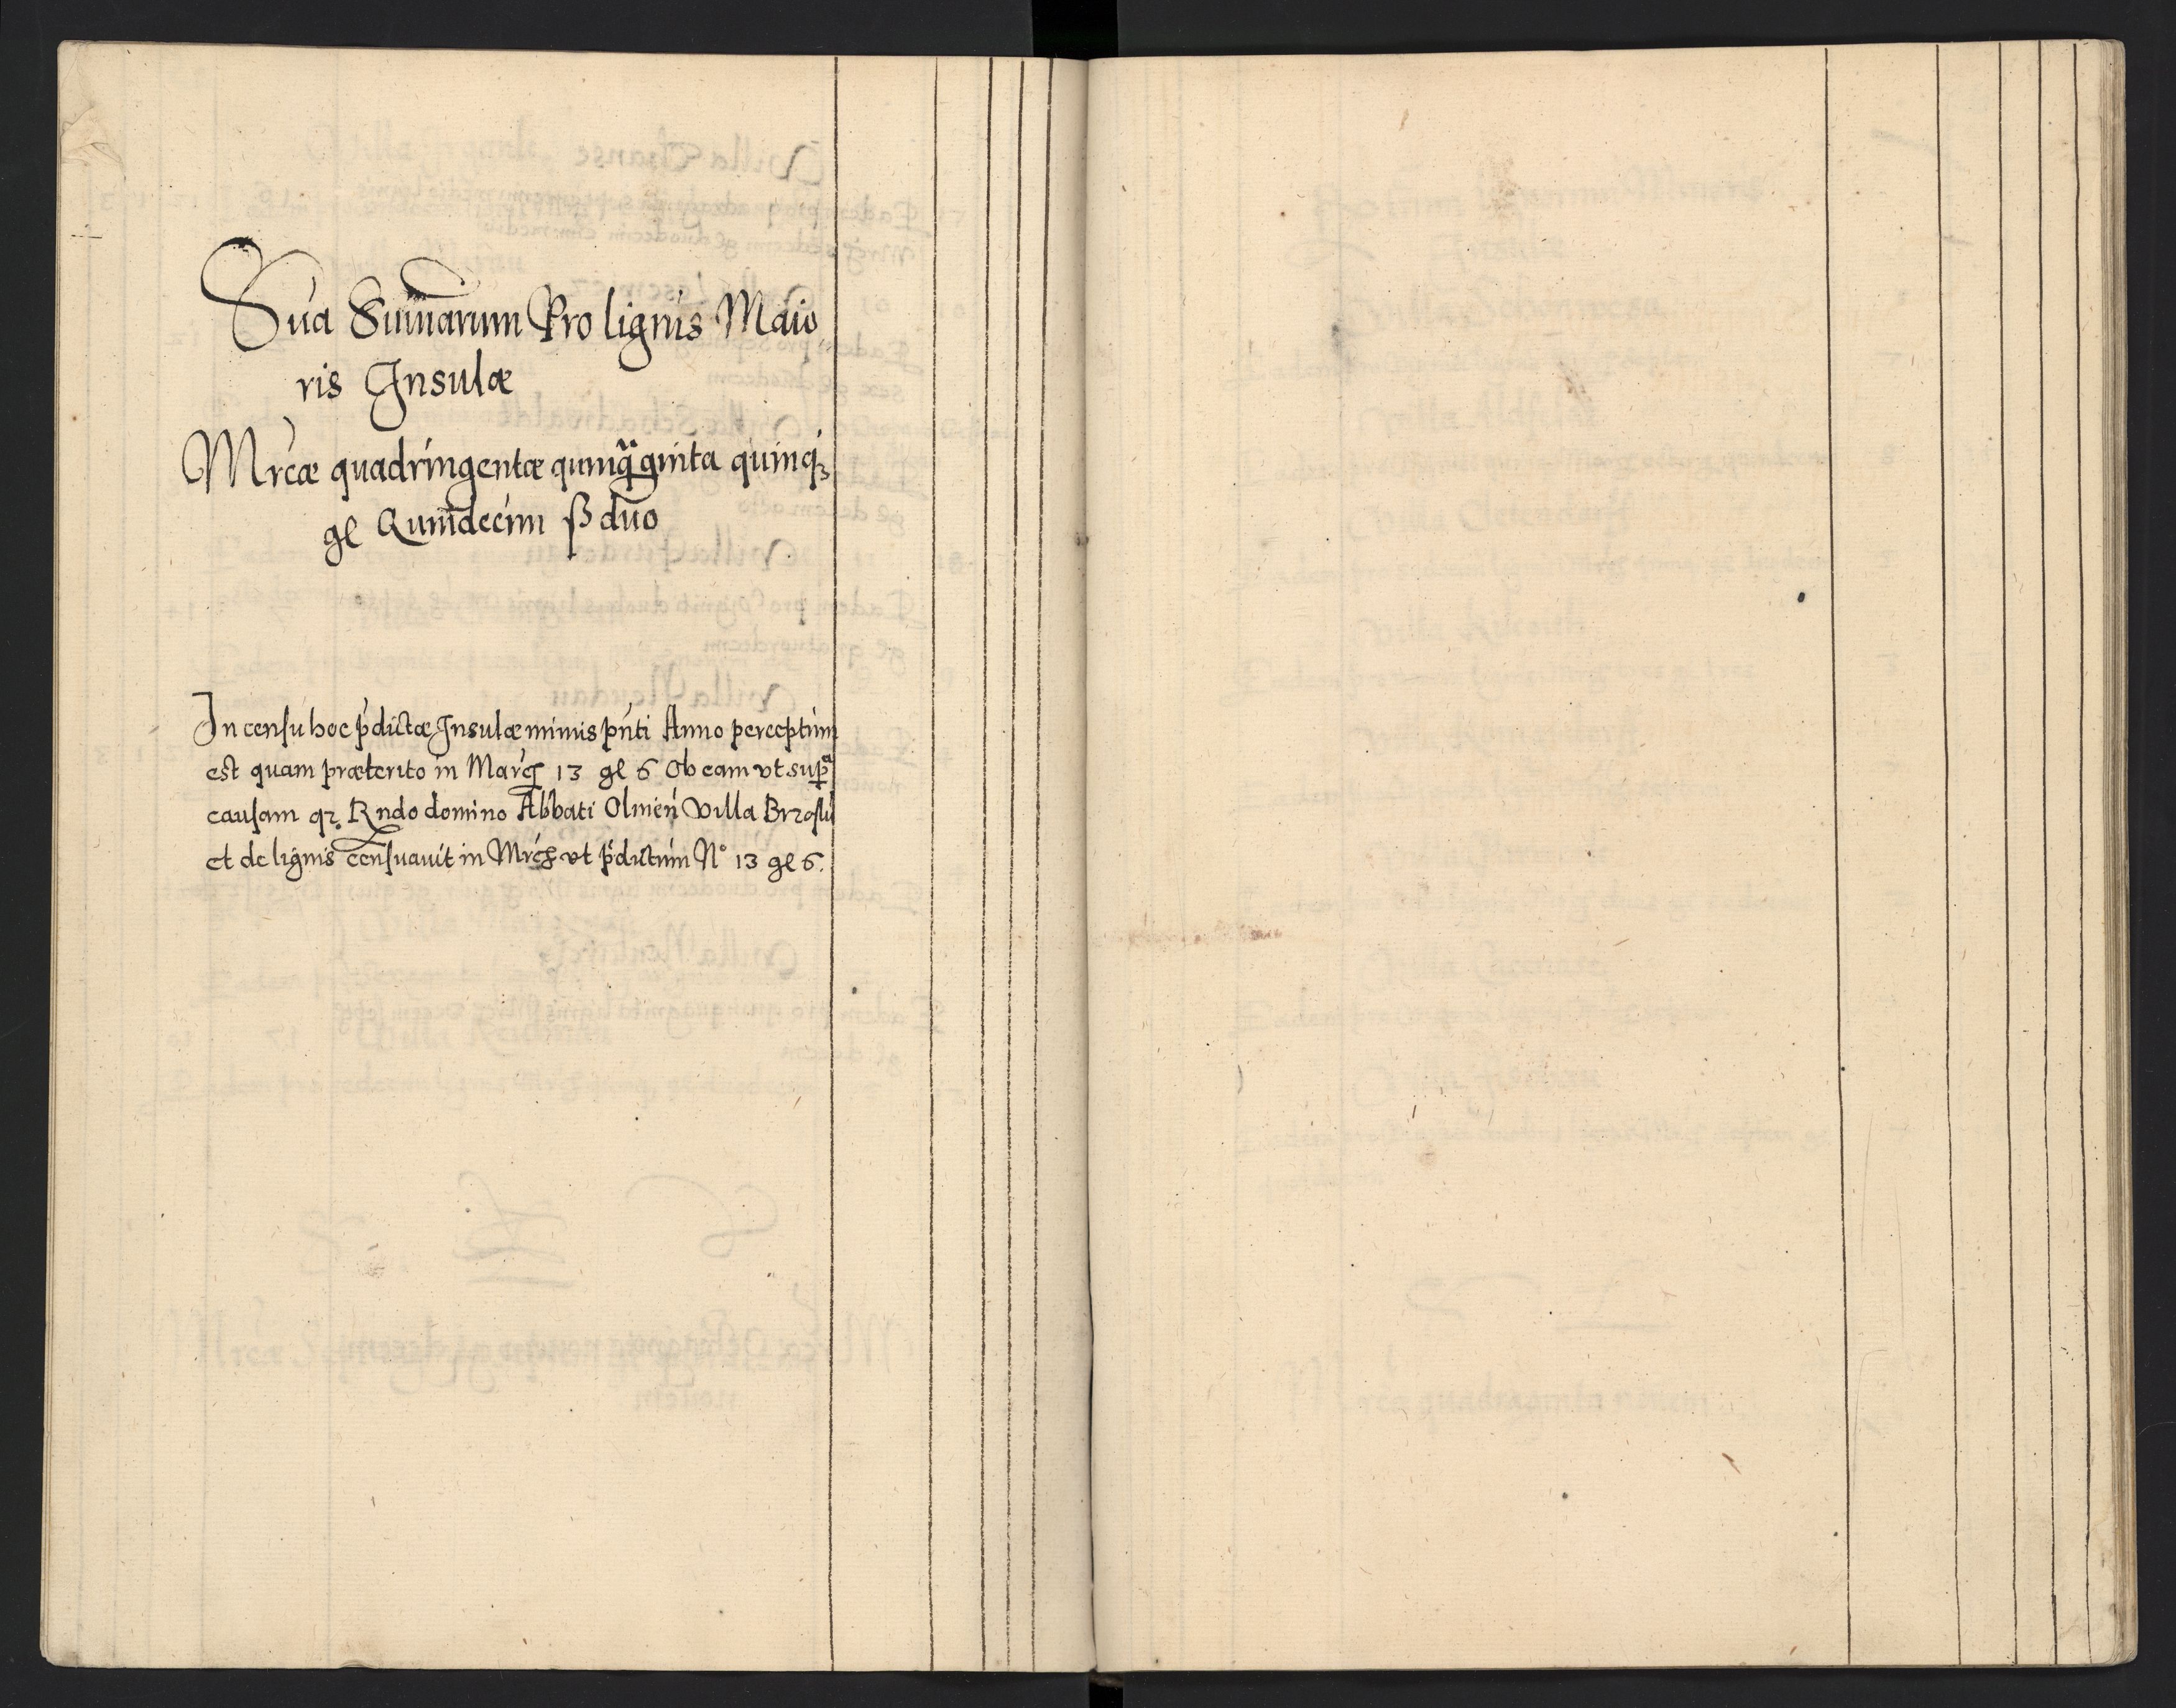 Sūa Sum̄arum Pro lignis Maio
ris Insulæ
Mrcæ quadringentæ quinq̄ginta quinq3
gl Quindecim ß duo
In censu hoc p̄dictæ Insulæ minus pn̄ti Anno perceptum
est quam præterito in Marcis 13 gl 6 Ob eam vt supͣ
causam qr. Rndo domino Abbati Oliuen̄ Villa
et de lignis censuauit in Mrcis vt p̄dictum No 13 gl 6.